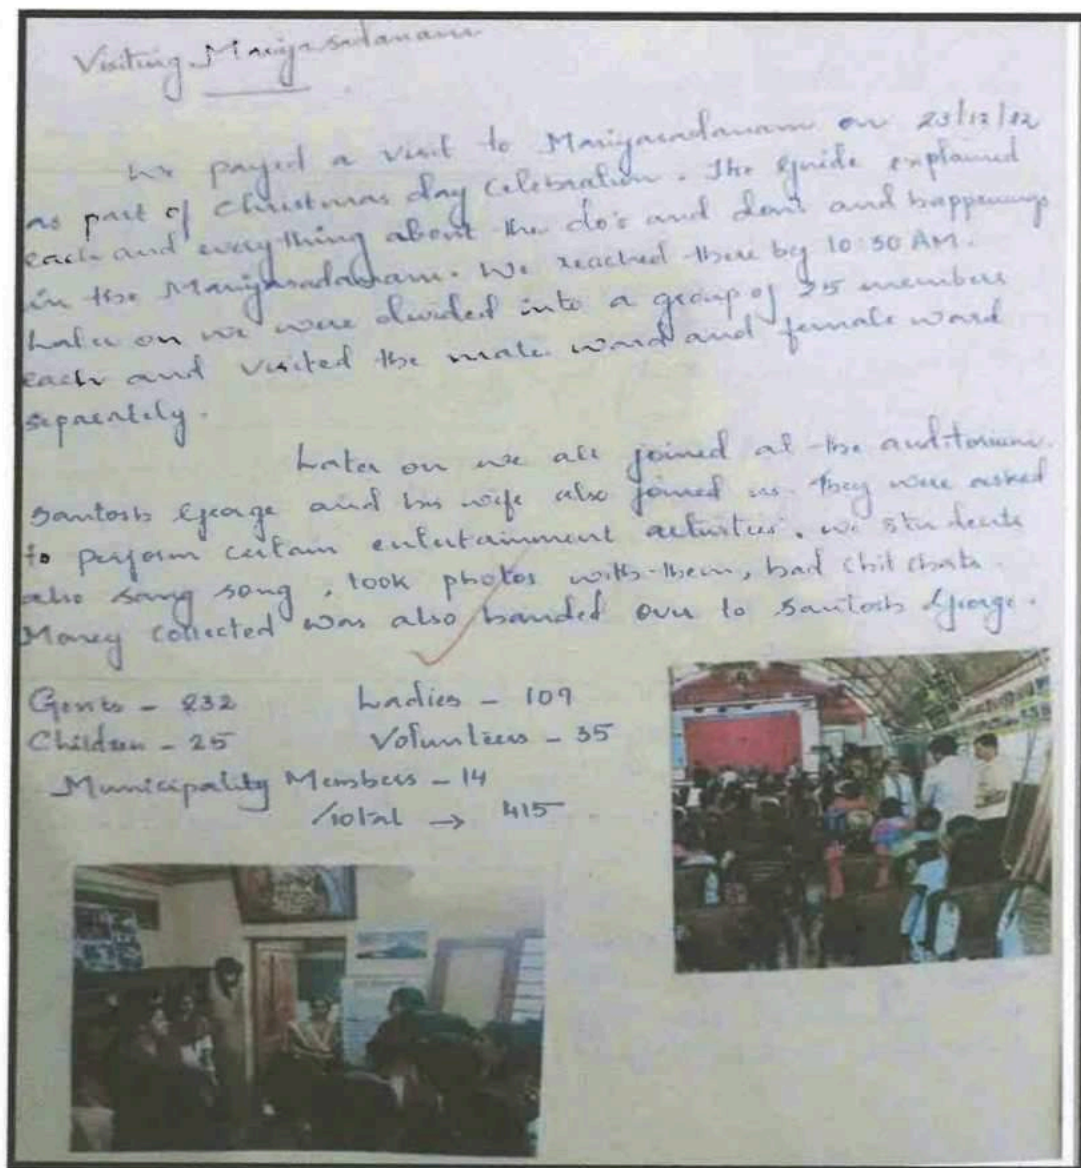 Visiting Mariyasadanam
We payed a visit to Mariyasadanam on 23/12/22
as part of Christmas day Celebration. The guide explained
each and everything about the do's and dont and happenings
in the Mariyasadanam. We reached there by 10:30 AM.
Later on we were divided into a group of 25 members
each and visited the male ward and female ward
seprately.
Later on we all joined at the auditorium.
Santosh George and his wife also joined us. They were asked
to perform certain entertainment activities. we students
also sang song, took photos with them, had chit chats.
Money collected was also handed over to Santosh George.
Gents - 232 Ladies - 109
Children - 25 Volunteers - 35
Municipality Members - 14
Total → 415